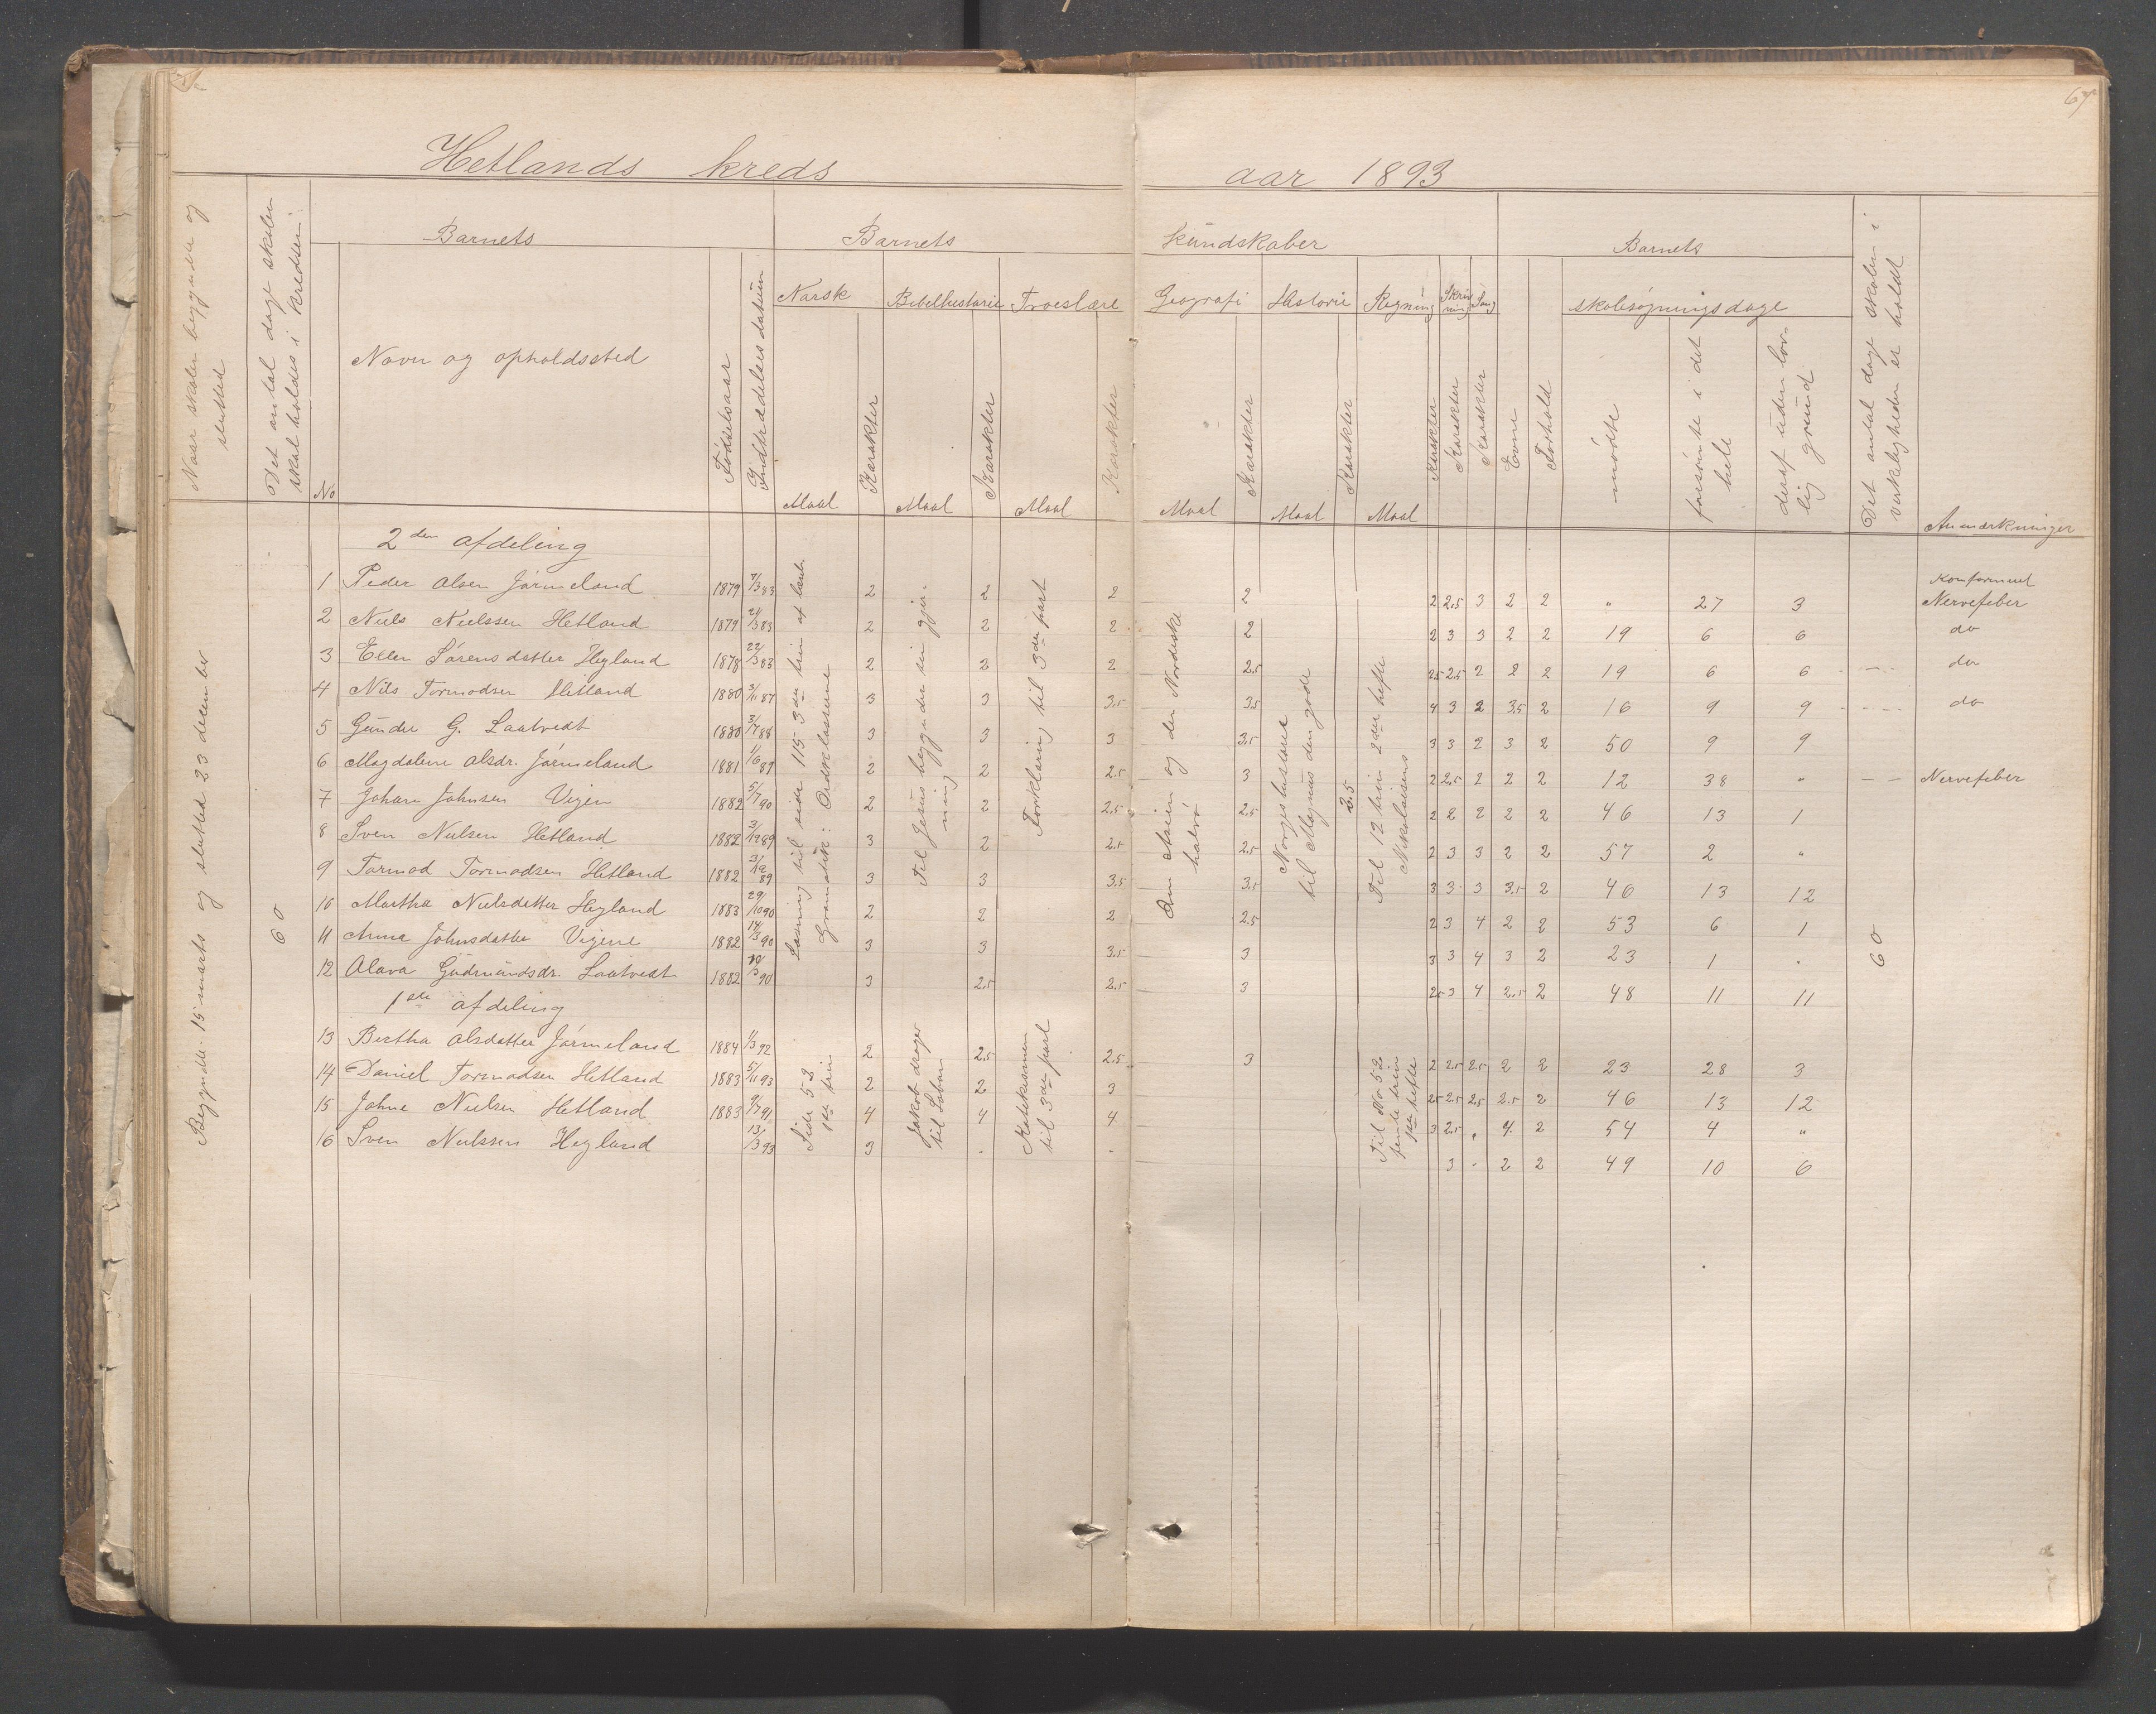 67
Hetlands kreds
aar 1893
Naar skolen begynder og sluttet
Det antal dage skolen skal holdes i kredsen
Barnets
Barnets
kundskaber
Barnets
Det antal dage skolen i virkeligheden er holdt
No
Navn og opholdssted
Fødselsaar
Indtrædelses datum
Norsk
Bibelhistorie
Troeslære
Geografi
Historie
Regning
Skrivning
Sang
Evne
Forhold
skolesøgningsdage
Maal Karakter Maal Karakter Maal Karakter
Maal Karakter Maal Karakter Maal Karakter Karakter Karakter
mødte
forsømte i det hele
deraf uden lovlig grund
Anmærkninger
Begyndte 15 marts og slutted 23 december
60
60
2den afdeling
Konfirmeret
1 Peder Olsen Jórmeland 1879 7/3 83 2 2 2 2 2 2.5 3 2 2 " 27 3 Nervefeber
2 Niels Nielssen Hetland 1879 21/3 83 2 2 2 2 2 3 3 2 2 19 6 6 do
3 Ellen Sørensdatter Hegland 1878 22/3 83 2 2 2 2.5 2.5 2.5 2 2 2 19 6 6 do
4 Nils Tormodsen Hetland 1880 3/11 87 3 3 3.5 3.5 4 3 2 3.5 2 16 9 9 do
5 Gunder G. Laatvedt 1880 3/7 88 3 3 3 3.5 3 3 2 3 2 50 9 9
6 Magdalene Olsdr. Jórmeland 1881 1/6 87 2 2 2.5 3 2 2.5 2 2 2 12 38 " Nervefeber
7 Johan Johnsen Vigen 1882 5/7 90 2 2 2.5 2.5 2 2 2 2 2 46 13 1
8 Sven Nielsen Hetland 1882 3/12 89 3 2 2.5 2.5 2 3 3 2 2 57 2 "
9 Tormod Tormodsen Hetland 1882 3/12 89 3 3 3.5 3.5 3 3 3 3.5 2 40 13 12
10 Martha Nielsdatter Hegland 1883 29/10 90 2 2 2 2.5 2 3 4 2 2 53 6 1
11 Anna Johnsdatter Vigene 1882 14/3 90 3 3 3.5 3 3 3 4 3 2 23 1 "
12 Olava Gudmundsdr. Laatvedt 1882 /3 90 3 2.5 2.5 3 2.5 3 4 2.5 2 48 11 11
1ste afdeling
13 Bertha Olsdatter Jórmeland 1884 1/3 92 2 2.5 2.5 3 2 2.5 2.5 2 2 23 28 3
14 Daniel Tormodsen Hetland 1883 5/11 93 2 2 3 2.5 2.5 2.5 2.5 2 46 13 12
15 Johne Nielsen Hetland 1883 9/7 91 4 4 4 3 2.5 " 4 2 54 4 "
16 Sven Nielssen Hegland 13/3 93 3 - - 3 - 2 2 49 10 6
Læsning til side 115 3die trin af læseb.
Gramatik: Ordklasserne
Til Jesus begynder sin gjerning
Forklaring til 3die part
Om Asien og den Nordiske halvø
Norgeshistorie til Magnus den gode
3.5
Til 12 trin 2det hefte Nikolaisens
Side 52 1ste trin
Jakob drager til Laban
Katekismen til 3die part
Til No 52 femte trin 1ste hefte